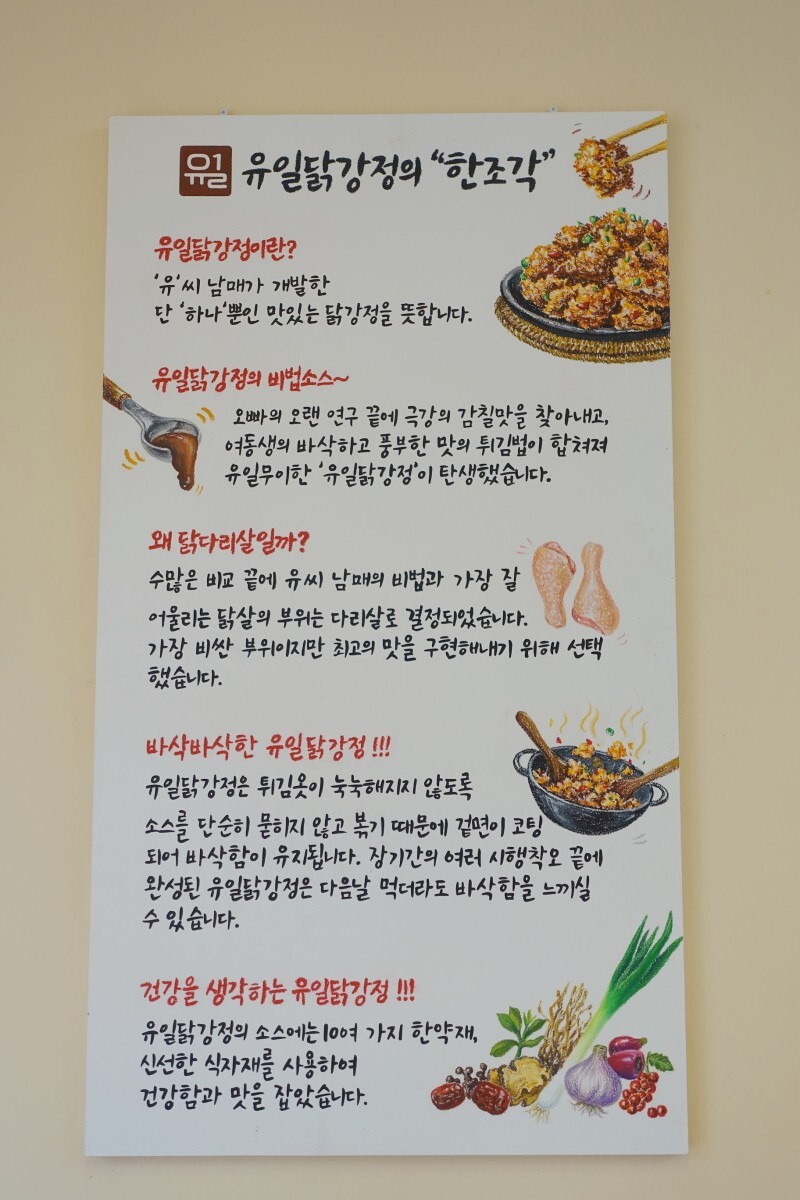 유일 유일닭강정의 “한조각”
유일닭강정이란?
‘유‘씨 남매가 개발한
단 ‘하나‘뿐인 맛있는 닭강정을 뜻합니다.
유일닭강정의 비법소스~
오빠의 오랜 연구 끝에 극강의 감칠맛을 찾아내고,
여동생의 바삭하고 풍부한 맛의 튀김법이 합쳐져
유일무이한 ‘유일닭강정‘이 탄생했습니다.
왜 닭다리살일까?
수많은 비교 끝에 유씨 남매의 비법과 가장 잘
어울리는 닭살의 부위는 다리살로 결정되었습니다.
가장 비싼 부위이지만 최고의 맛을 구현해내기 위해 선택
했습니다.
바삭바삭한 유일닭강정 !!!
유일닭강정은 튀김옷이 눅눅해지지 않도록
소스를 단순히 묻히지 않고 볶기 때문에 겉면이 코팅
되어 바삭함이 유지됩니다. 장기간의 여러 시행착오 끝에
완성된 유일닭강정은 다음날 먹더라도 바삭함을 느끼실
수 있습니다.
건강을 생각하는 유일닭강정 !!!
유일닭강정의 소스에는 10여 가지 한약재,
신선한 식자재를 사용하여
건강함과 맛을 잡았습니다.